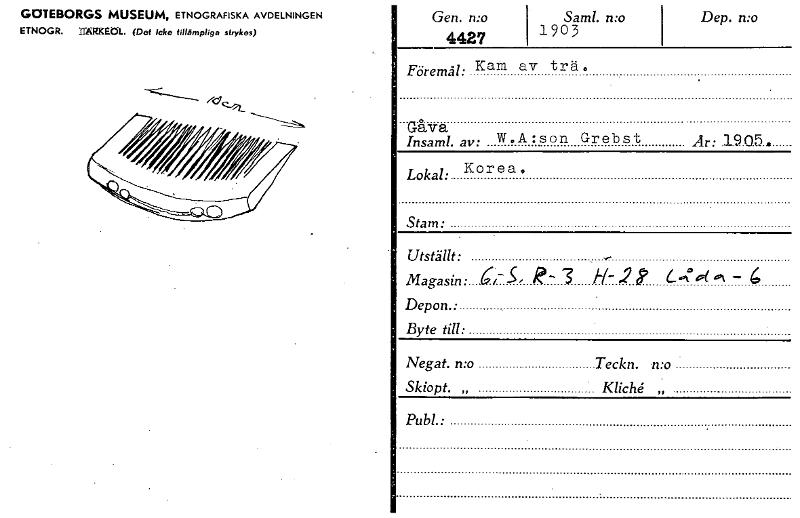 GÖTEBORGS MUSEUM, ETNOGRAFISKA AVDELNINGEN
ETNOGR. ARKEOL. (Det icke tillämpliga strykes)
Gen. n:o Saml. n:o Dep. n:o
4427 1903
Föremål: Kam av trä.
Gåva
Insaml. av: W.A:son Grebst År: 1905.
Lokal: Korea.
Stam:
Utställt:
Magasin: G.-S. R-3 H-28 Låda-6
Depon.:
Byte till:
Negat. n:o Teckn. n:o
Skiopt. „ Kliché „
Publ.: